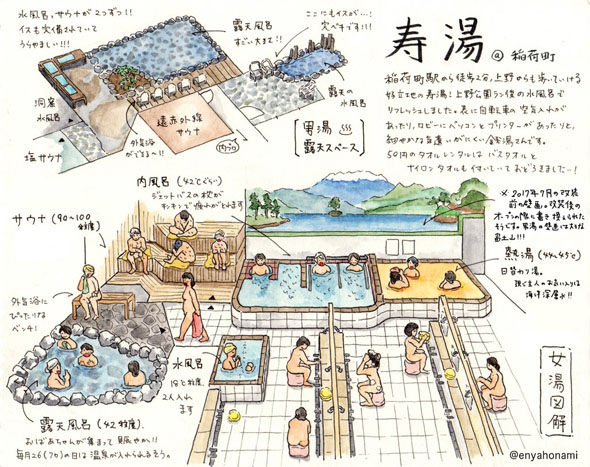 寿湯 @稲荷町
稲荷町駅から徒歩2分,上野からも歩いていける
好立地の寿湯!上野公園ラン後の水風呂で
リフレッシュしました。表に自転車の空気入れが
あったり、ロビーにパソコンとプリンターがあったりと、
細やかな気遣いがにくい銭湯さんです。
50円のタオルレンタルは バスタオルと
ナイロンタオルも付いていておどろきました…!
水風呂,サウナが2つずつ!!
イスも完備されていて
うらやましい!!!
露天風呂
すごい大きさ!!
ここにもイスが…!
完ペキです!!!
洞窟
水風呂
塩サウナ
外気浴
ができる〜!
遠赤外線
サウナ
内フロ
露天の
水風呂
男湯
露天スペース
内風呂 (42℃ぐらい)
ジェットバスの枕が
キンキンで疲れがとれます
サウナ (90〜100
程度)
※2017年7月の改装
前の壁画。改装後の
オープンの際に書き換えられた
そうです。男湯の壁画は大きな
富士山!!!
熱う湯 (44〜45℃)
日替わり湯。
海洋深層水!!
外気浴に
ぴったりな
ベンチ!
水風呂
18℃程度、
2人入れ
ます
露天風呂 (42程度).
おばあちゃんが集まって賑やか!!
毎月26(フロ)の日は温泉が入れられるそう。
女湯図解
@enyahonami